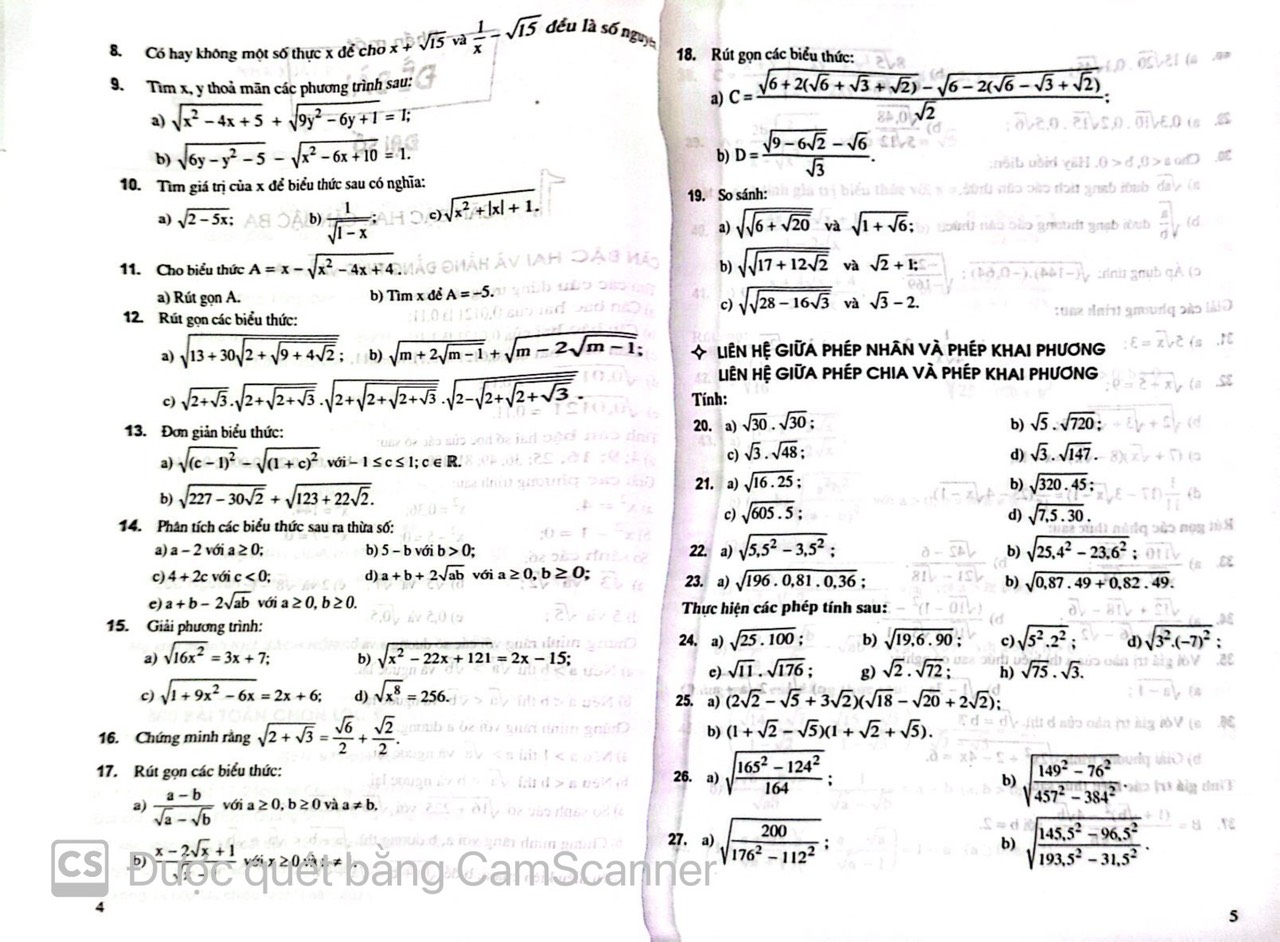 8. Có hay không một số thực x để cho x + √15 và 1/x − √15 đều là số nguyên
9. Tìm x, y thoả mãn các phương trình sau:
a) √(x² − 4x + 5) + √(9y² − 6y + 1) = 1;
b) √(6y − y² − 5) − √(x² − 6x + 10) = 1.
10. Tìm giá trị của x để biểu thức sau có nghĩa:
a) √(2 − 5x); b) 1/√(1 − x); c) √(x² + |x| + 1).
11. Cho biểu thức A = x − √(x² − 4x + 4).
a) Rút gọn A. b) Tìm x để A = −5.
12. Rút gọn các biểu thức:
a) √(13 + 30√(2 + √(9 + 4√2))); b) √(m + 2√(m − 1)) + √(m − 2√(m − 1));
c) √(2+√3).√(2+√(2+√3)).√(2+√(2+√(2+√3))).√(2−√(2+√(2+√3))).
13. Đơn giản biểu thức:
a) √((c − 1)²) − √((1 + c)²) với − 1 ≤ c ≤ 1; c ∈ ℝ.
b) √(227 − 30√2) + √(123 + 22√2).
14. Phân tích các biểu thức sau ra thừa số:
a) a − 2 với a ≥ 0; b) 5 − b với b > 0;
c) 4 + 2c với c < 0; d) a + b + 2√(ab) với a ≥ 0, b ≥ 0;
e) a + b − 2√(ab) với a ≥ 0, b ≥ 0.
15. Giải phương trình:
a) √(16x²) = 3x + 7; b) √(x² − 22x + 121) = 2x − 15;
c) √(1 + 9x² − 6x) = 2x + 6; d) √(x⁸) = 256.
16. Chứng minh rằng √(2 + √3) = √6/2 + √2/2.
17. Rút gọn các biểu thức:
a) (a − b)/(√a − √b) với a ≥ 0, b ≥ 0 và a ≠ b.
b) x − 2√x + 1 với x ≥ 0 và ≠
CS Được quét bằng CamScanner
4
18. Rút gọn các biểu thức:
a) C = (√(6 + 2(√6 + √3 + √2)) − √(6 − 2(√6 − √3 + √2)))/√2;
b) D = (√(9 − 6√2) − √6)/√3.
19. So sánh:
a) √(√(6 + √20)) và √(1 + √6);
b) √(√(17 + 12√2)) và √2 + 1;
c) √(√(28 − 16√3)) và √3 − 2.
✧ LIÊN HỆ GIỮA PHÉP NHÂN VÀ PHÉP KHAI PHƯƠNG
LIÊN HỆ GIỮA PHÉP CHIA VÀ PHÉP KHAI PHƯƠNG
Tính:
20. a) √30 . √30; b) √5 . √720;
c) √3 . √48; d) √3 . √147.
21. a) √(16 . 25); b) √(320 . 45);
c) √(605 . 5); d) √(7,5 . 30).
22. a) √(5,5² − 3,5²); b) √(25,4² − 23,6²);
23. a) √(196 . 0,81 . 0,36); b) √(0,87 . 49 + 0,82 . 49).
Thực hiện các phép tính sau:
24. a) √(25 . 100); b) √(19,6 . 90); c) √(5² . 2²); d) √(3².(−7)²);
e) √11 . √176; g) √2 . √72; h) √75 . √3.
25. a) (2√2 − √5 + 3√2)(√18 − √20 + 2√2);
b) (1 + √2 − √5)(1 + √2 + √5).
26. a) √((165² − 124²)/164); b) √((149² − 76²)/(457² − 384²))
27. a) √(200/(176² − 112²)); b) √((145,5² − 96,5²)/(193,5² − 31,5²)).
5